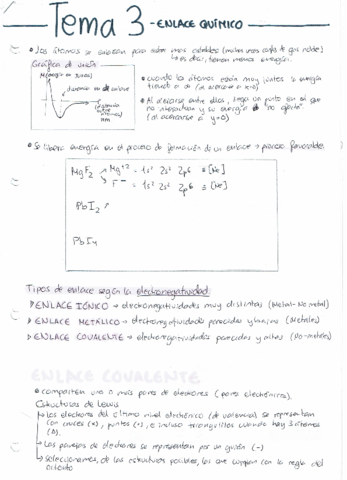 Tema 3 - ENLACE QUÍMICO
• Los átomos se enlazan para estar más estables (
→ es decir, tienen menos energía.
Gráfica de
(energía en
distancia de enlace
(distancia entre átomos)
nm
• cuando los átomos están muy juntos la energía
tiende a ∞ (al acercarse a x=0)
• Al alejarse entre ellos, llega un punto en el que
no interactúan y su energía "no afecta"
(al acercarse a y=0)
• Se libera energía en el proceso de formación de un enlace → proceso favorable.
MgF2 Mg+2 - 1s² 2s² 2p6 ≡ [Ne]
F- = 1s² 2s² 2p6 ≡ [Ne]
PbI2
PbI4
Tipos de enlace según la electronegatividad:
ENLACE IÓNICO → electronegatividades muy distintas (Metal-No metal)
ENLACE METÁLICO → electronegatividades parecidas y bajas (Metales)
ENLACE COVALENTE → electronegatividades parecidas y altas (No-metales)
ENLACE COVALENTE
• comparten uno o más pares de electrones (pares electrónicos).
Estructuras de Lewis
→ Los electrones del último nivel electrónico (de valencia) se representan
con cruces (x), puntos (•) e incluso triangulillos cuando hay 3 átomos
(Δ).
→ Las parejas de electrones se representan por un guión (-)
→ seleccionamos, de las estructuras posibles, las que cumplan con la regla del
octeto